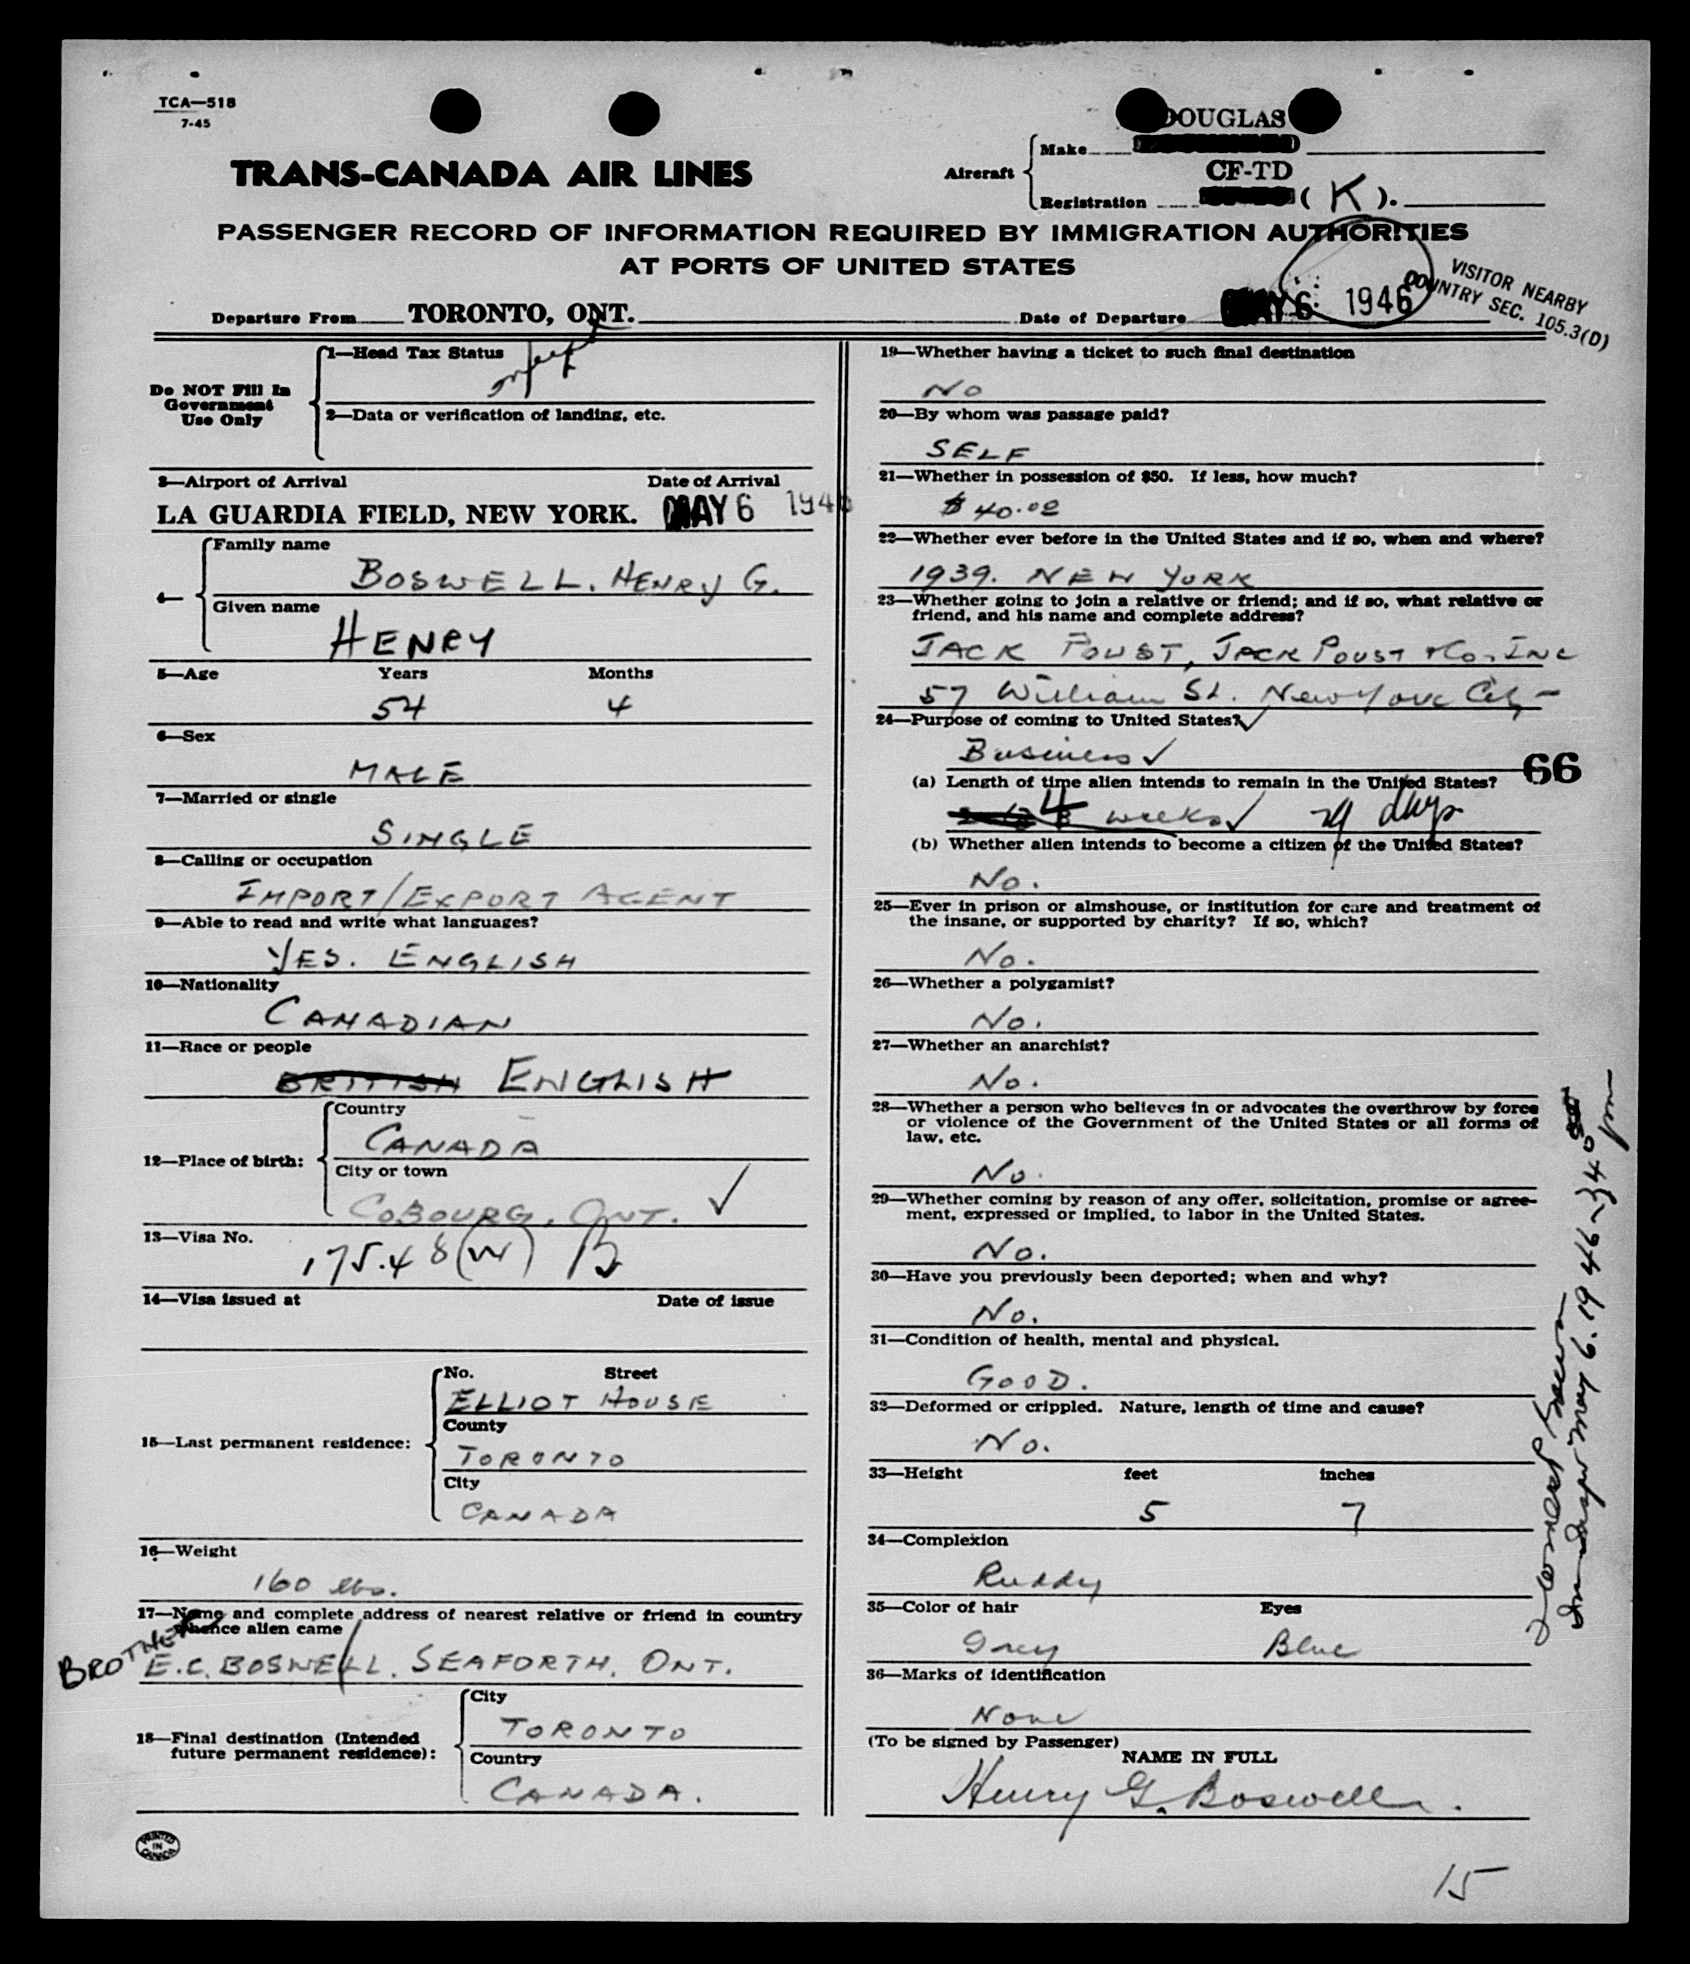 TCA—518
7-45
TRANS-CANADA AIR LINES
DOUGLAS
Aircraft
Make
CF-TD
Registration ( K ).
PASSENGER RECORD OF INFORMATION REQUIRED BY IMMIGRATION AUTHORITIES
AT PORTS OF UNITED STATES
VISITOR NEARBY
COUNTRY SEC. 105.3(D)
Departure From TORONTO, ONT. Date of Departure MAY 6 1946
Do NOT Fill In
Government
Use Only
1—Head Tax Status
2—Data or verification of landing, etc.
3—Airport of Arrival Date of Arrival
LA GUARDIA FIELD, NEW YORK. MAY 6 1946
4— Family name
BOSWELL. HENRY G.
Given name
HENRY
5—Age Years Months
54 4
6—Sex
MALE
7—Married or single
SINGLE
8—Calling or occupation
IMPORT/EXPORT AGENT
9—Able to read and write what languages?
YES. ENGLISH
10—Nationality
CANADIAN
11—Race or people
BRITISH ENGLISH
12—Place of birth:
Country
CANADA
City or town
COBOURG, ONT. ✓
13—Visa No.
175.48(W) B
14—Visa issued at Date of issue
15—Last permanent residence:
No. Street
ELLIOT HOUSE
County
TORONTO
City
CANADA
16—Weight
160 lbs.
17—Name and complete address of nearest relative or friend in country
whence alien came
BROTHER
E.C. BOSWELL. SEAFORTH. ONT.
18—Final destination (Intended
future permanent residence):
City
TORONTO
Country
CANADA.
PRINTED
IN
CANADA
19—Whether having a ticket to such final destination
NO
20—By whom was passage paid?
SELF
21—Whether in possession of $50. If less, how much?
$ 40.00
22—Whether ever before in the United States and if so, when and where?
1939. NEW YORK
23—Whether going to join a relative or friend; and if so, what relative or
friend, and his name and complete address?
JACK POUST, JACK POUST & Co. INC
57 William St. New York City —
24—Purpose of coming to United States? ✓
Business ✓
66
(a) Length of time alien intends to remain in the United States?
4 weeks ✓ 29 days
(b) Whether alien intends to become a citizen of the United States?
No.
25—Ever in prison or almshouse, or institution for care and treatment of
the insane, or supported by charity? If so, which?
No.
26—Whether a polygamist?
No.
27—Whether an anarchist?
No.
28—Whether a person who believes in or advocates the overthrow by force
or violence of the Government of the United States or all forms of
law, etc.
No.
29—Whether coming by reason of any offer, solicitation, promise or agree-
ment, expressed or implied, to labor in the United States.
No.
30—Have you previously been deported; when and why?
No.
31—Condition of health, mental and physical.
GOOD.
32—Deformed or crippled. Nature, length of time and cause?
No.
33—Height feet inches
5 7
34—Complexion
Ruddy
35—Color of hair Eyes
Grey Blue
36—Marks of identification
None
(To be signed by Passenger)
NAME IN FULL
Henry G. Boswell.
Imm Inspr May 6. 1946 340 pm
15